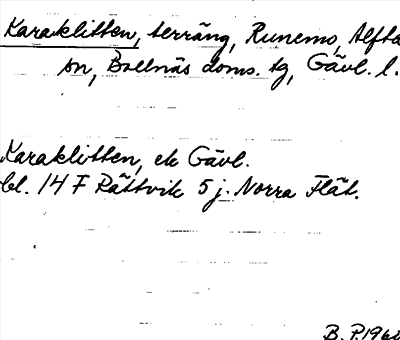 Karaklitten, terräng, Runemo, Alfta
sn, Bollnäs doms. tg, Gävl. l.
Karaklitten, ek Gävl.
bl. 14 F Rättvik 5 j. Norra Flät.
B. P. 196